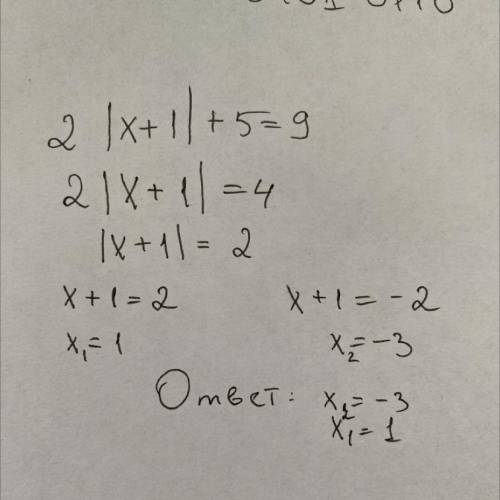 2 |x+1| + 5 = 9
2 |x + 1| = 4
|x + 1| = 2
x + 1 = 2    x + 1 = -2
x₁ = 1    x₂ = -3
Ответ: x₂ = -3
x₁ = 1